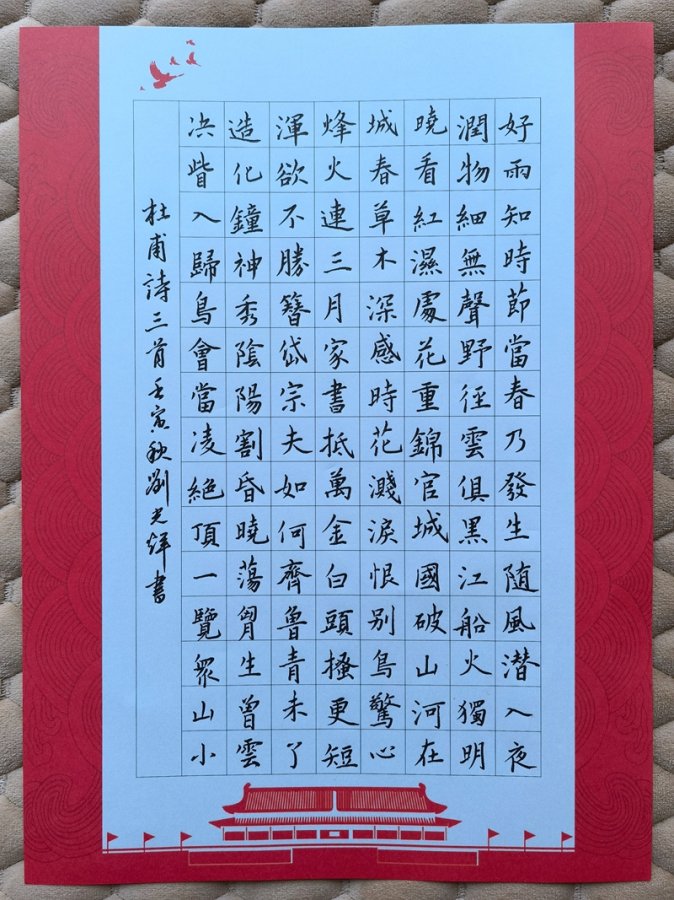 好雨知時節當春乃發生随風潛入夜
潤物細無聲野徑雲俱黑江船火獨明
曉看紅濕處花重錦官城國破山河在
城春草木深感時花濺淚恨别鳥驚心
烽火連三月家書抵萬金白頭搔更短
渾欲不勝簪岱宗夫如何齊魯青未了
造化鐘神秀陰陽割昏曉蕩胷生曾雲
决眥入歸鳥會當凌絕頂一覽衆山小
杜甫詩三首壬寅秋劉光輝書